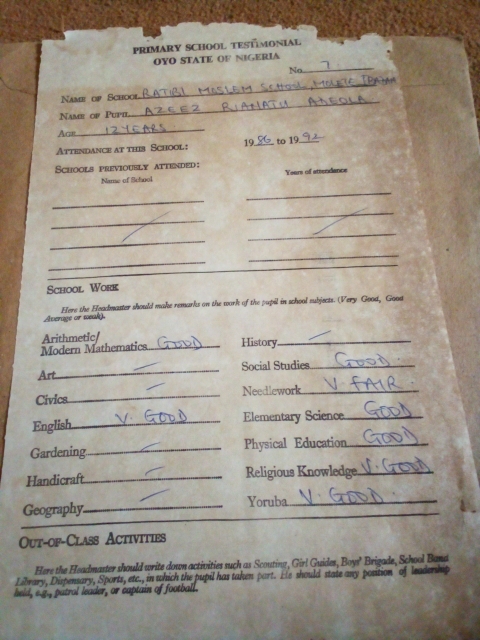 PRIMARY SCHOOL TESTIMONIAL
OYO STATE OF NIGERIA
No. 7
NAME OF SCHOOL RATIBI MOSLEM SCHOOL, MOLETE IBADAN
NAME OF PUPIL AZEEZ RIANATU ADEOLA
AGE 12 YEARS
ATTENDANCE AT THIS SCHOOL: 1986 to 1992
SCHOOLS PREVIOUSLY ATTENDED:
Name of School Years of attendance
SCHOOL WORK
Here the Headmaster should make remarks on the work of the pupil in school subjects. (Very Good, Good
Average or weak).
Arithmetic/
Modern Mathematics GOOD
Art
Civics
English V. GOOD
Gardening
Handicraft
Geography
History
Social Studies GOOD
Needlework V FAIR
Elementary Science GOOD
Physical Education GOOD
Religious Knowledge V. GOOD
Yoruba V. GOOD
OUT-OF-CLASS ACTIVITIES
Here the Headmaster should write down activities such as Scouting, Girl Guides, Boys' Brigade, School Band
Library, Dispensary, Sports, etc., in which the pupil has taken part. He should state any position of leadership
held, e.g., patrol leader, or captain of football.